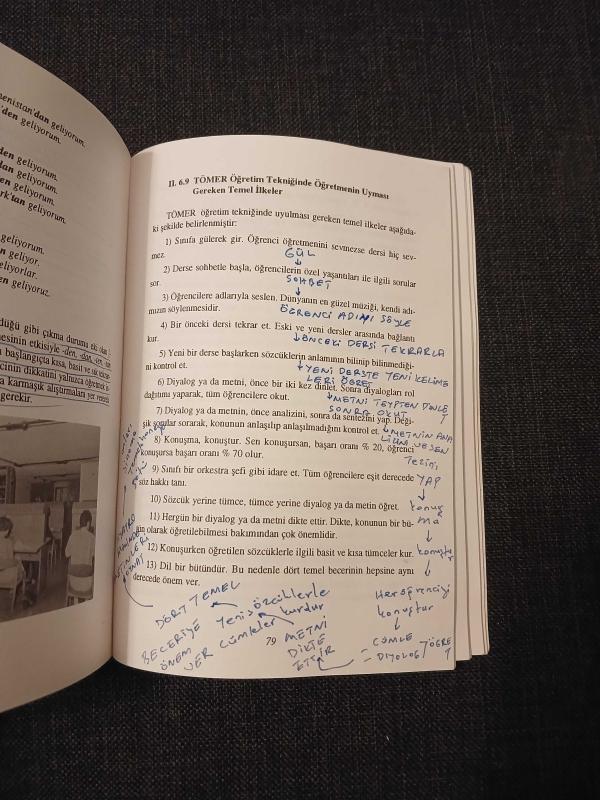 menistan'dan geliyorum.
'den geliyorum.
den geliyorum.
dan geliyorum.
en geliyorum.
rk'tan geliyorum.
geliyorum.
en geliyor.
eliyorlar.
en geliyoruz.
düğü gibi çıkma durumu eki olan
mesinin etkisiyle -den, -dan, -ten, -tan
başlangıçta kısa, basit ve tek
cinin dikkatini yalnızca öğretmek
a karmaşık alıştırmaları yer vere
gerekir.
II. 6.9 TÖMER Öğretim Tekniğinde Öğretmenin Uyması
Gereken Temel İlkeler
TÖMER öğretim tekniğinde uyulması gereken temel ilkeler aşağıda-
ki şekilde belirlenmiştir:
1) Sınıfa gülerek gir. Öğrenci öğretmenini sevmezse dersi hiç sev-
mez.
GÜL
2) Derse sohbetle başla, öğrencilerin özel yaşantıları ile ilgili sorular
sor.
SOHBET
3) Öğrencilere adlarıyla seslen. Dünyanın en güzel müziği, kendi adı-
mızın söylenmesidir.
ÖĞRENCİ ADINI SÖYLE
4) Bir önceki dersi tekrar et. Eski ve yeni dersler arasında bağlantı
kur.
ÖNCEKİ DERSİ TEKRARLA
5) Yeni bir derse başlarken sözcüklerin anlamının bilinip bilinmediği-
ni kontrol et.
YENİ DERSTE YENİ KELİME
LERİ ÖĞRET
6) Diyalog ya da metni, önce bir iki kez dinlet. Sonra diyalogları rol
dağıtımı yaparak, tüm öğrencilere okut.
METNİ TEYPTEN DİNLET
SONRA OKUT
7) Diyalog ya da metnin, önce analizini, sonra da sentezini yap. Deği-
şik sorular sorarak, konunun anlaşılıp anlaşılmadığını kontrol et.
METNİN ANA
LİZİNİ VE SEN
TEZİNİ
YAP
8) Konuşma, konuştur. Sen konuşursan, başarı oranı % 20, öğrenci
konuşursa başarı oranı % 70 olur.
9) Sınıfı bir orkestra şefi gibi idare et. Tüm öğrencilere eşit derecede
söz hakkı tanı.
konuş
ma
10) Sözcük yerine tümce, tümce yerine diyalog ya da metin öğret.
11) Hergün bir diyalog ya da metni dikte ettir. Dikte, konunun bir bü-
tün olarak öğretilebilmesi bakımından çok önemlidir.
12) Konuşurken öğretilen sözcüklerle ilgili basit ve kısa tümceler kur.
konuştur
13) Dil bir bütündür. Bu nedenle dört temel becerinin hepsine aynı
derecede önem ver.
Her öğrenciyi
konuştur
CÜMLE
DİYOLOG
ÖĞRET
METNİ
DİKTE
ETTİR
Yeni sözcüklerle
cümleler kurdur
DÖRT TEMEL
BECERİYE
ÖNEM
VER
79